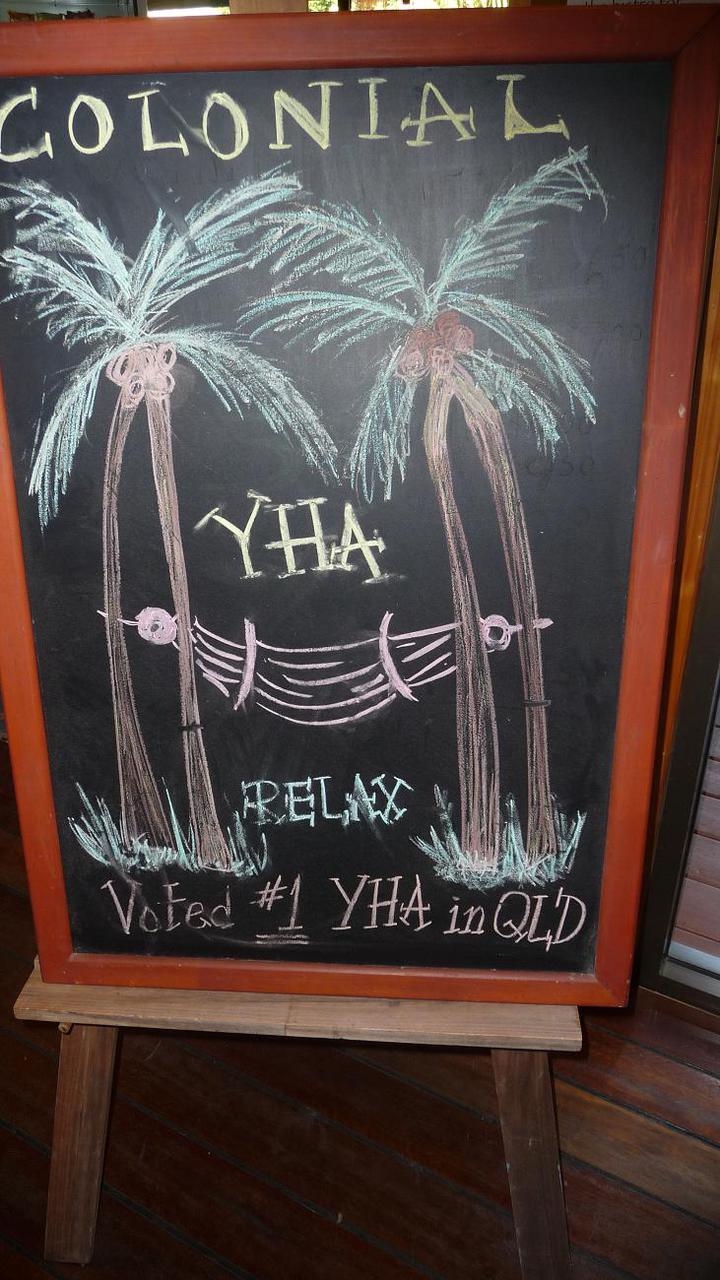 COLONIAL
YHA
RELAX
Voted #1 YHA in QLD